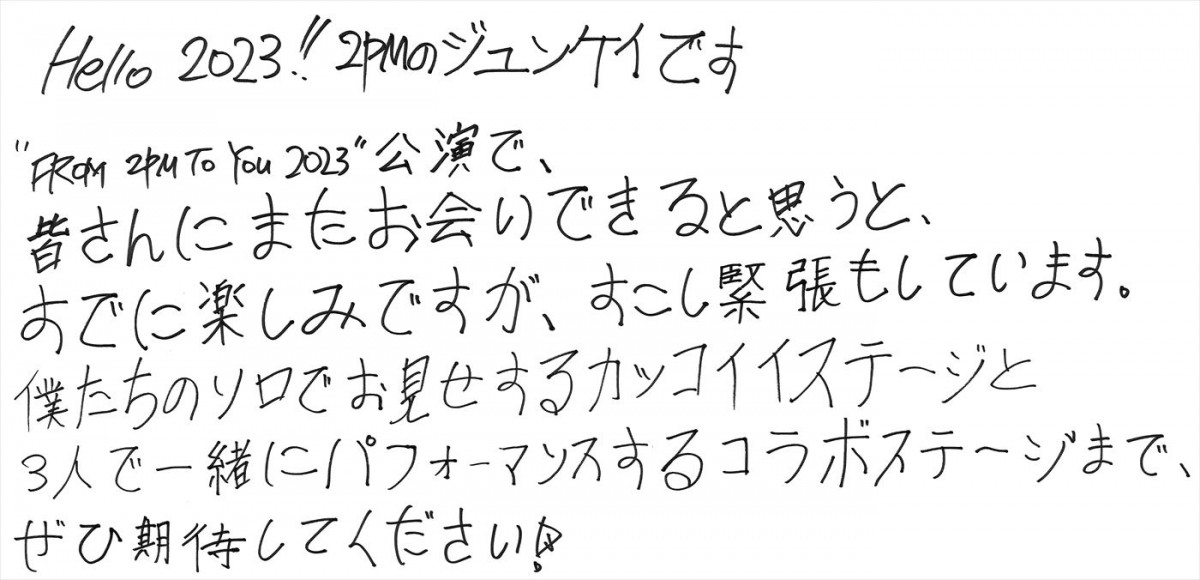 Hello 2023!! 2PMのジュンケイです
"FROM 2PM To You 2023"公演で、
皆さんにまたお会いできると思うと、
すでに楽しみですが、すこし緊張もしています。
僕たちのソロでお見せするカッコイイステージと
3人で一緒にパフォーマンスするコラボステージまで、
ぜひ期待してください!